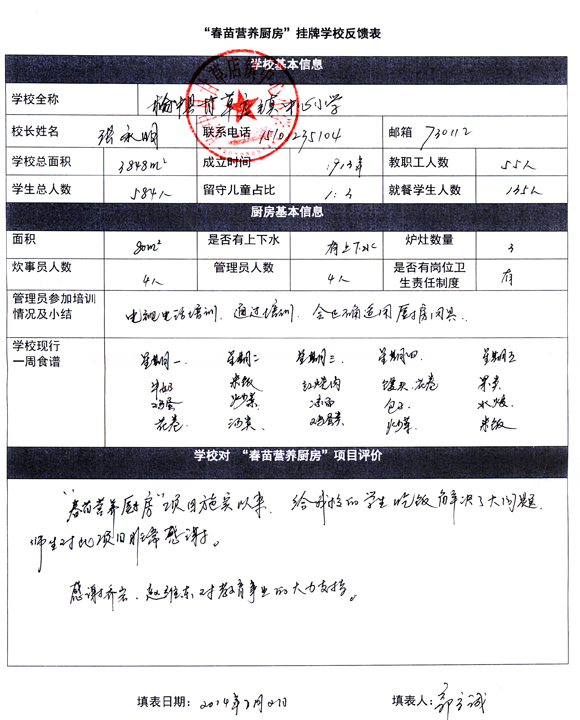 “春苗营养厨房”挂牌学校反馈表
学校基本信息
学校全称 榆中县甘草店镇 小学
校长姓名 张永明 联系电话 15101235104 邮箱 730112
学校总面积 3848m² 成立时间 1913年 教职工人数 55人
学生总人数 584人 留守儿童占比 1:3 就餐学生人数 135人
厨房基本信息
面积 80m² 是否有上下水 有上下水 炉灶数量 3
炊事员人数 4人 管理员人数 4人 是否有岗位卫生责任制度 有
管理员参加培训
情况及小结 电视电话培训、通过培训、会正确运用厨房用具.
学校现行
一周食谱
星期一 星期二 星期三 星期四 星期五
牛奶 米饭 红烧肉 馒头 花卷 果类
鸡蛋 炒菜 凉面 包子 水饺
花卷 汤类 鸡蛋类 炒菜 米饭
学校对 “春苗营养厨房”项目评价
“春苗营养厨房”项目施实以来、给我校的学生吃饭解决了大问题.
师生对此项目非常感谢。
感谢 对教育事业的大力支持。
填表日期: 2014年 月21日 填表人: